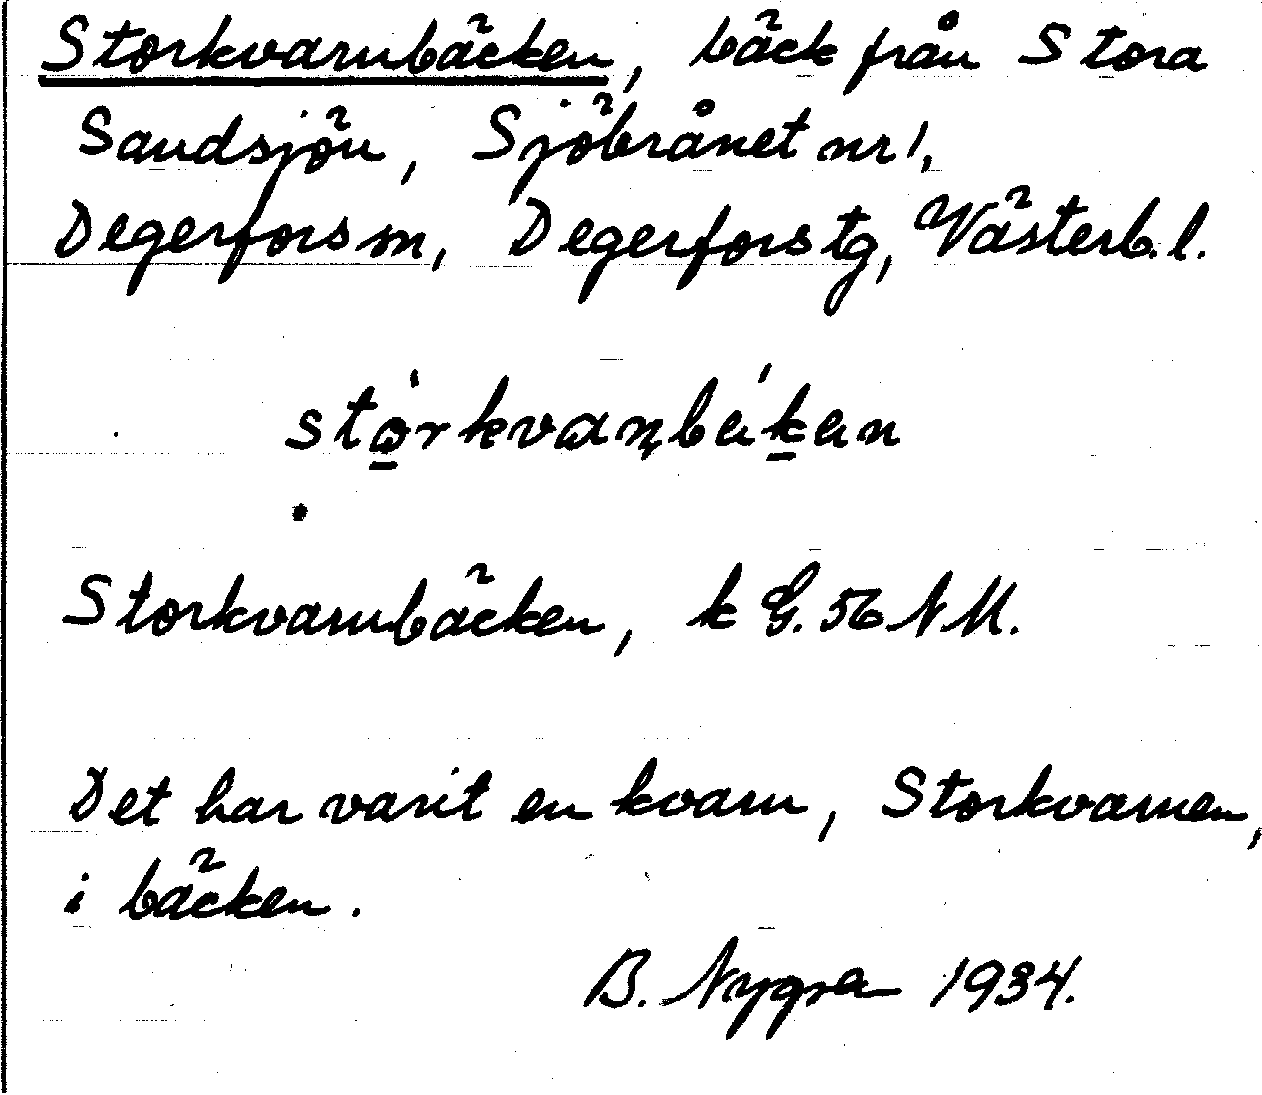 Storkvarnbäcken, bäck från Stora
Sandsjön, Sjöbrånet nr 1,
Degerfors sn, Degerfors tg, Västerb. l.
Storkvarnbäcken, k G. 56 NM.
Det har varit en kvarn, Storkvarnen,
i bäcken.
B. Nygren 1934.